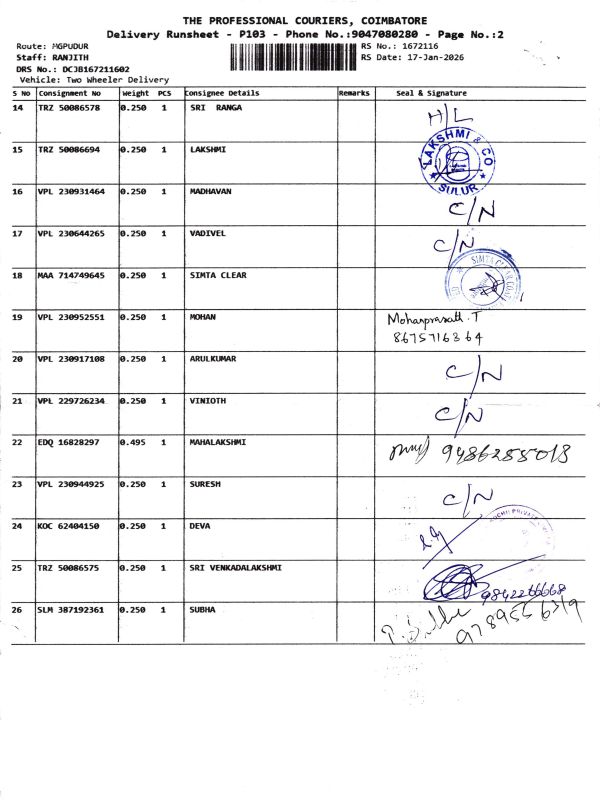 THE PROFESSIONAL COURIERS, COIMBATORE
Delivery Runsheet - P103 - Phone No.:9047080280 - Page No.:2
Route: MGPUDUR
RS No.: 1672116
Staff: RANJITH
RS Date: 17-Jan-2026
DRS No.: DCJB167211602
Vehicle: Two Wheeler Delivery
S No Consignment No Weight PCS Consignee Details Remarks Seal & Signature
14 TRZ 50086578 0.250 1 SRI RANGA H/L
15 TRZ 50086694 0.250 1 LAKSHMI LAKSHMI & CO SULUR
16 VPL 230931464 0.250 1 MADHAVAN C/N
17 VPL 230644265 0.250 1 VADIVEL C/N
18 MAA 714749645 0.250 1 SIMTA CLEAR SIMTA CLEAR
19 VPL 230952551 0.250 1 MOHAN Mohanprasath.T
8675716364
20 VPL 230917108 0.250 1 ARULKUMAR C/N
21 VPL 229726234 0.250 1 VINIOTH C/N
22 EDQ 16828297 0.495 1 MAHALAKSHMI 9486255018
23 VPL 230944925 0.250 1 SURESH C/N
24 KOC 62404150 0.250 1 DEVA
25 TRZ 50086575 0.250 1 SRI VENKADALAKSHMI 9842266668
26 SLM 387192361 0.250 1 SUBHA